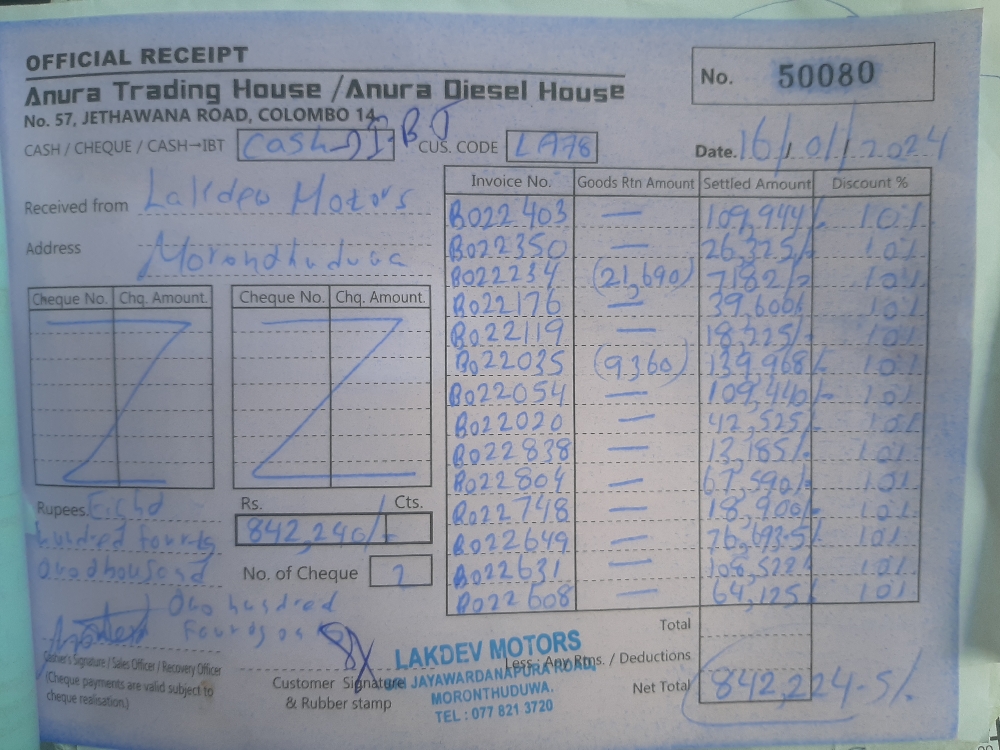 OFFICIAL RECEIPT
Anura Trading House /Anura Diesel House
No. 57, JETHAWANA ROAD, COLOMBO 14.
No. 50080
CASH / CHEQUE / CASH→IBT Cash→IBT CUS. CODE LA78
Date. 16/01/2024
Received from Lakdew Motors
Address Moronthuduwa
Cheque No. Chq. Amount. Cheque No. Chq. Amount.
Invoice No. Goods Rtn Amount Settled Amount Discount %
B022403 — 109,944/- 10%
B022350 — 26,325/- 10%
B022234 (21,690) 7182/- 10%
B022176 — 39,600/- 10%
B022119 — 18,225/- 10%
B022035 (9360) 139,968/- 10%
B022054 — 109,440/- 10%
B022020 — 42,525/- 10%
B022838 — 13,185/- 10%
B022804 — 67,590/- 10%
B022748 — 18,900/- 10%
B022649 — 76,693.5/- 10%
B022631 — 108,522/- 10%
B022608 — 64,125/- 10%
Rupees
hundred
Rs. Cts.
842,240/-
No. of Cheque
Cashier's Signature / Sales Officer / Recovery Officer
(Cheque payments are valid subject to
cheque realisation.)
Customer Signature
& Rubber stamp
LAKDEV MOTORS
JAYAWARDANAPURA ROAD,
MORONTHUDUWA.
TEL : 077 821 3720
Total
Less: Any Rtns. / Deductions
Net Total 842,224.5/-